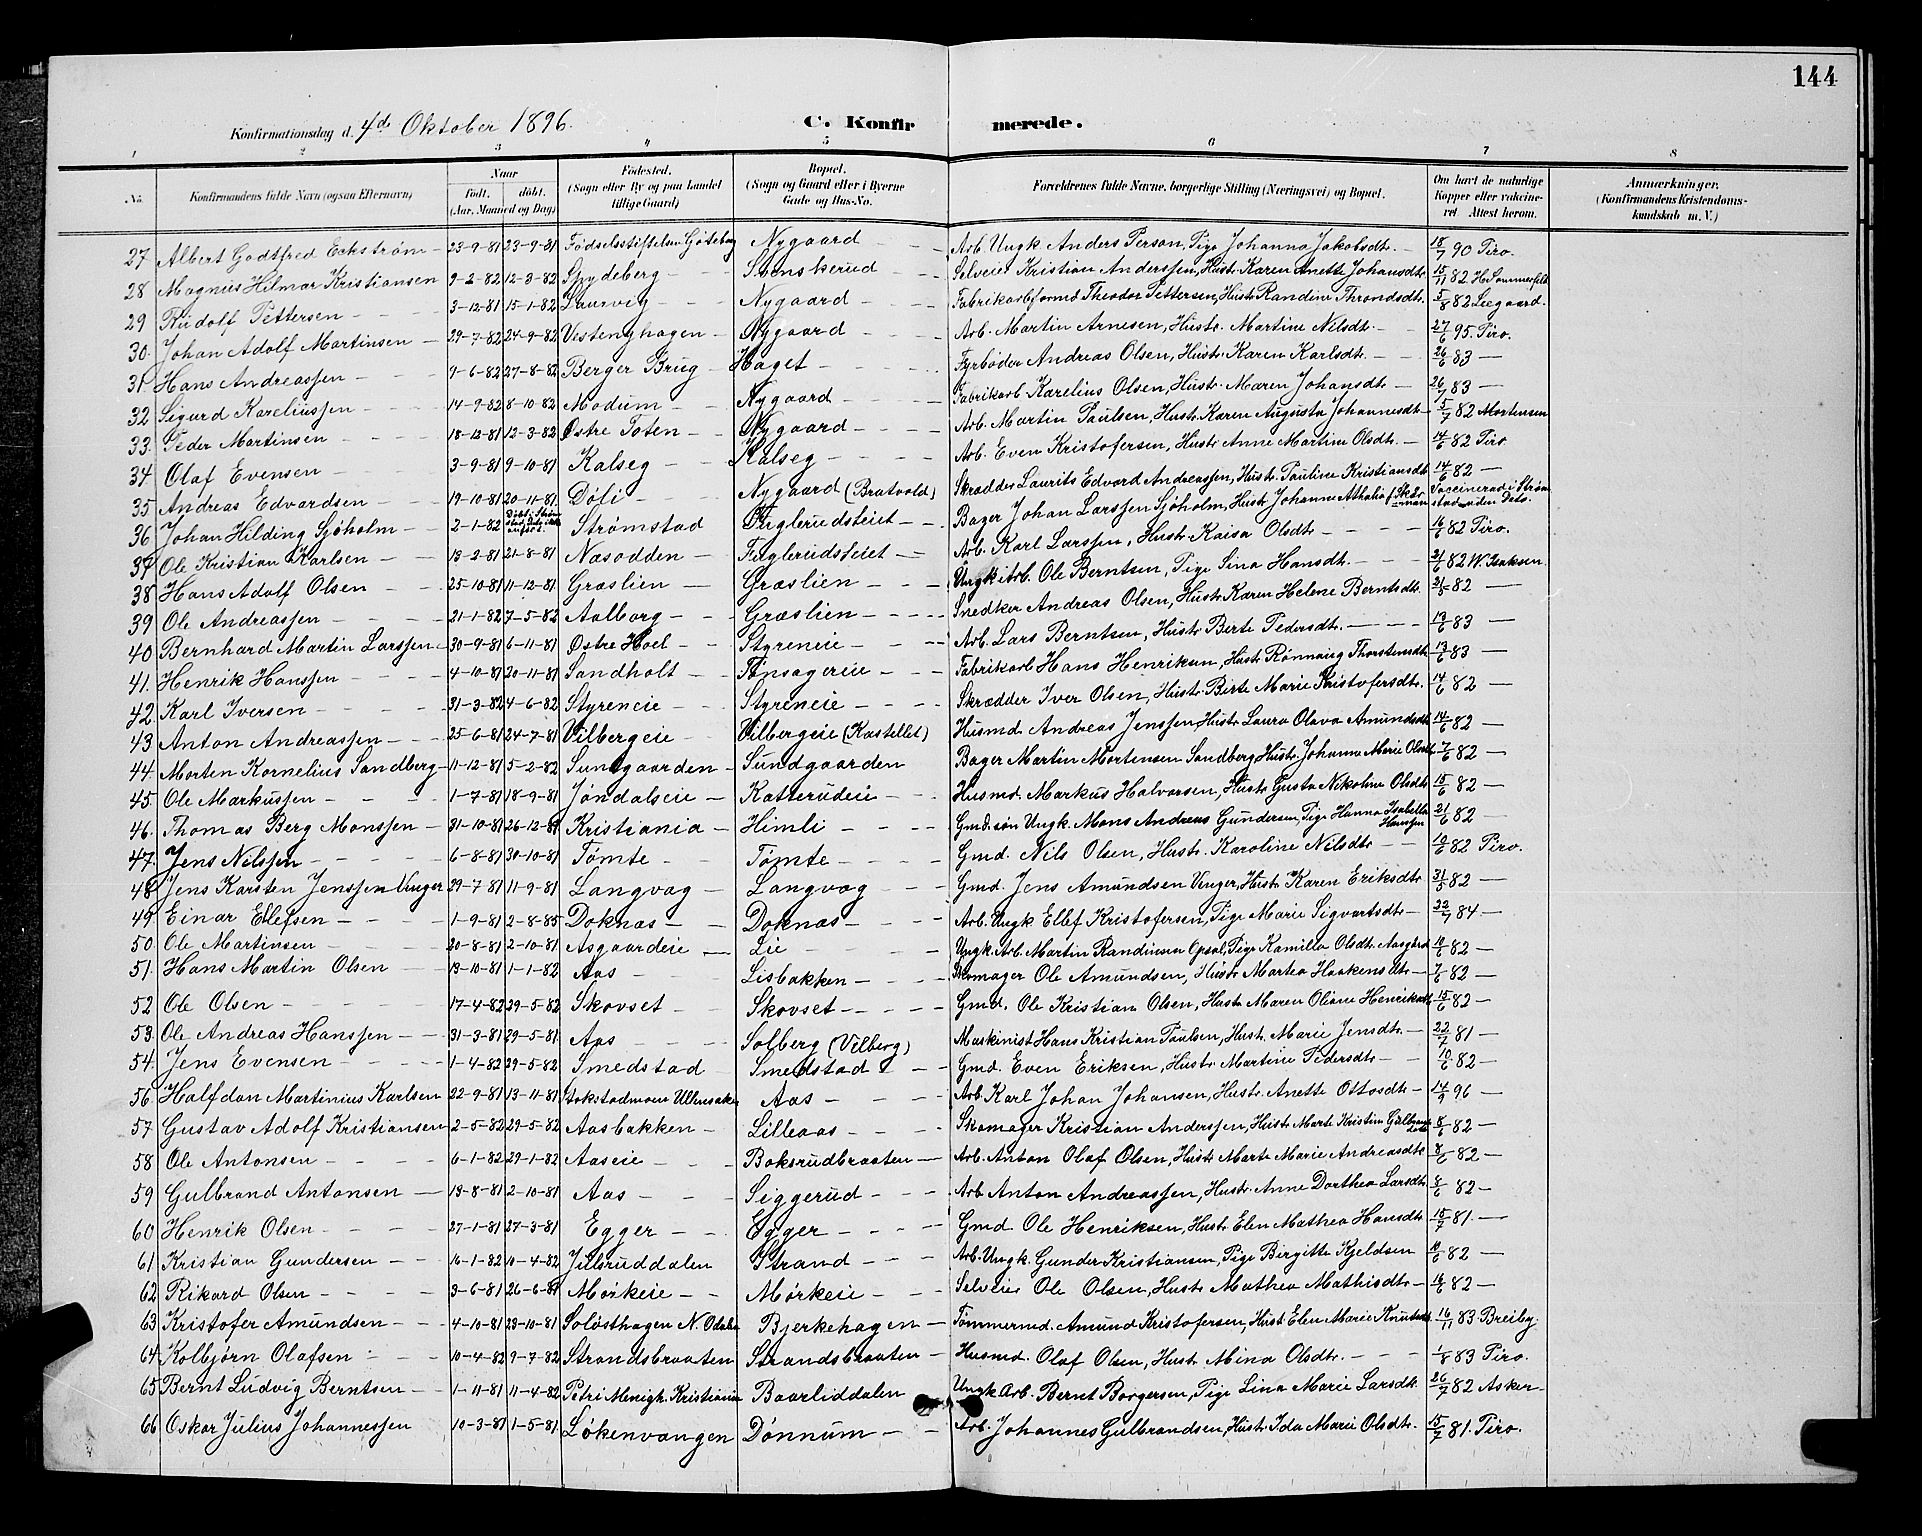 144
Konfirmationsdag d. 4de Oktober 1896.
C. Konfirmerede.
1 2 3 4 5 6 7 8
No. Konfirmandens fulde Navn (ogsaa Efternavn) Naar født. døbt. (Aar, Maaned og Dag) Fødested. (Sogn eller By og paa Landet tillige Gaard) Bopæl. (Sogn og Gaard eller i Byerne Gade og Hus-No. Forældrenes fulde Navne, borgerlige Stilling (Næringsvei) og Bopæl. Om havt de naturlige Kopper eller vakcineret Attest herom. Anmærkninger. (Konfirmandens Kristendomskundskab m. V.)
27 Albert Godtfred Eckstrøm 23-9-81 23-9-81 Fødselsstiftelsen Gøteborg Nygaard Arb. Ungk. Anders Person, Pige Johanna Jakobsdtr. 18/7 90 Piro.
28 Magnus Hilmar Kristiansen 9-2-82 12-3-82 Spydeberg Svenskerud Selveier Kristian Anderssen, Hustr. Karen Anette Johansdtr. 15/11 82 Hr. Sommerfeldt
29 Rudolf Pettersen 3-12-81 15-1-82 Laurvig Nygaard Fabrikarbformd. Theodor Pettersen, Hustr. Randine Throndsdtr. 5/8 82 Leegaard.
30. Johan Adolf Martinsen 29-7-82 24-9-82 Vestenghagen Nygaard Arb. Martin Arnesen, Hustr. Martine Nilsdtr. 27/6 95 Piro.
31 Hans Andreassen 9-6-82 27-8-82 Berger Brug Haget Fyrbøder Andreas Olsen, Hustr. Karen Karlsdtr. 26/6 83 —
32 Sigurd Kareliussen 14-9-82 8-10-82 Modum Nygaard Fabrikarb. Karelius Olsen, Hustr. Maren Johansdtr. 26/7 83 —
33. Peder Martinsen 18-12-81 12-3-82 Østre Toten Nygaard Arb. Martin Paulsen, Hustr. Karen Augusta Johannesdtr. 5/7 82 Mortensen
34 Olaf Evensen 3-9-81 9-10-81 Kalseg Kalseg Arb. Even Kristofersen, Hustr. Anne Martine Olsdtr. 14/6 82 Piro
35 Andreas Edvardsen 19-10-81 20-11-81 Døli Nygaard (Bratvold) Skrædder Laurits Edvard Andreassen, Hustr. Pauline Kristiansdtr. 14/6 82 —
36 Johan Hilding Sjøholm 2-1-82 Strømstad Fuglerudsteiet Bager Johan Larssen Sjøholm, Hustr. Johanne Athalia Vaccinerad i Strømstad uden Dato.
37 Ole Kristian Karlsen 13-2-81 21-8-81 Næsodden Fuglerudsteiet Arb. Karl Larssen, Hustr. Kaisa Olsdtr. 16/6 82 Piro.
38 Hans Adolf Olsen 25-10-81 11-12-81 Græslien Græslien Ungk. Arb. Ole Berntsen, Pige Lina Hansdtr. 21/6 82 W. Isaksen.
39 Ole Andreassen 21-1-82 7-5-82 Aalborg Græslien Snedker Andreas Olsen, Hustr. Karen Helene Berntsdtr. 82 —
40 Bernhard Martin Larssen 30-9-81 6-11-81 Østre Hoel Styreneie Arb. Lars Berntsen, Hustr. Berte Pedersdtr. 19/6 83 —
41. Henrik Hanssen 4-10-81 20-11-81 Sandholt Tønsagereie Fabrikarb Hans Henriksen, Hustr. Rønnaug Thorstensdtr. 13/6 83 —
42. Karl Iversen 31-3-82 4-6-82 Styreneie Styreneie Skrædder Iver Olsen, Hustr. Birte Marie Kristofersdtr. 14/6 82 —
43 Anton Andreassen 25-6-81 24-7-81 Vilbergeie Vilbergeie (Kastellet) Husmd. Andreas Jenssen, Hustr. Laura Olava Amundsdtr. 14/6 82 —
44. Morten Kornelius Sandberg 11-12-81 5-2-82 Sundgaarden Sundgaarden Bager Martin Mortensen Sandberg, Hustr. Johanna Marie Olsdtr. 7/6 82 —
45. Ole Markussen 1-7-81 18-9-81 Jøndalseie Katterudeie Husmd. Markus Halvorsen, Hustr. Gusta Nikoline Olsdtr. 15/6 82 —
46. Thomas Berg Monssen 31-10-81 26-12-81 Kristiania Himli Gmd. søn Ungk. Mons Andreas Gundersen, Pige Hanna Isabella Hanssen 21/6 82 —
47. Jens Nilssen 6-8-81 30-10-81 Tømte Tømte Gmd. Nils Olsen, Hustr. Karoline Nilsdtr. 10/6 82 Piro.
48 Jens Karsten Jenssen Unger 29-7-81 11-9-81 Langvag Langvag Gmd. Jens Amundsen Unger, Hustr. Karen Eriksdtr. 31/5 82 —
49. Einar Ellefsen 1-9-81 2-8-85 Doknæs Doknæs Arb. Ungk. Ellef Kristofersen, Pige Marie Sigvartsdtr. 22/7 84 —
50. Ole Martinsen 20-8-81 2-10-81 Asgaardeie Lie Ungk. Arb. Martin Randinsen Opsal, Pige Kamilla Olsdtr. Aasgård 10/6 82 —
51. Hans Martin Olsen 19-10-81 1-1-82 Aas Lisbakken Skomager Ole Amundsen, Hustr. Martea Haakensdtr. 7/6 82 —
52 Ole Olsen 17-4-82 29-5-82 Skovset Skovset Gmd. Ole Kristian Olsen, Hustr. Maren Oliane Henriksdtr. 15/6 82 —
53. Ole Andreas Hanssen 31-3-81 29-5-81 Aas Solberg (Vilberg) Maskinist Hans Kristian Paulsen, Hustr. Marie Jensdtr. 22/7 81 —
54. Jens Evensen 1-4-82 29-5-82 Smedstad Smedstad Gmd. Even Eriksen, Hustr. Martine Pedersdtr. 10/6 82 —
56. Halfdan Martinius Karlsen 22-9-81 13-11-81 Stokstadmoen Ullensaker Aas Arb. Karl Johan Johansen, Hustr. Anette Ottosdtr. 14/9 96 —
57 Gustav Adolf Kristiansen 2-5-82 29-5-82 Aasbakken Lilleaas Skomager Kristian Anderssen, Hustr. Marte Kristine Gulbrandsdtr 8/6 82 —
58 Ole Antonsen 6-1-82 29-1-82 Aaseie Boksrudbraaten Arb. Anton Olaf Olsen, Hustr. Marte Marie Andreasdtr. 8/6 82 —
59 Gulbrand Antonsen 19-8-81 2-10-81 Aas Siggerud Arb. Anton Andreassen, Hustr. Anne Dorthea Larsdtr. 8/6 82 —
60 Henrik Olsen 27-1-81 27-3-81 Egger Egger Gmd. Ole Henriksen, Hustr. Elen Mathea Hansdtr. 15/7 81 —
61 Kristian Gundersen 16-1-82 10-4-82 Julsruddalen Strand Arb. Ungk. Gunder Kristiansen, Pige Birgitte Kjeldsen 10/6 82 —
62 Rikard Olsen 3-6-81 26-6-81 Mørkeie Mørkeie Selveier Ole Olsen, Hustr. Mathea Mathisdtr. 16/6 82 —
63 Kristofer Amundsen 4-10-81 23-10-81 Soløsthagen N. Odalen Bjerkehagen Tømmermd. Amund Kristofersen, Hust. Elen Marie Knutsdtr. 16/11 83 Breiby.
64 Kolbjørn Olafsen 10-4-82 9-7-82 Strandsbraaten Strandsbraaten Husmd. Olaf Olsen, Hustr. Mina Olsdtr. 1/8 83 Piro.
65 Bernt Ludvig Berntsen 1-11-81 11-4-82 Petri Menigh. Kristiania Baarliddalen Ungk. Arb. Bernt Borgersen, Pige Lina Marie Larsdtr. 26/7 82 Asker
66 Oskar Julius Johannessen 10-3-81 1-5-81 Løkenvangen Dønnum Arb. Johannes Gulbrandsen, Hustr. Ida Marie Olsdtr. 15/7 81. Piro.